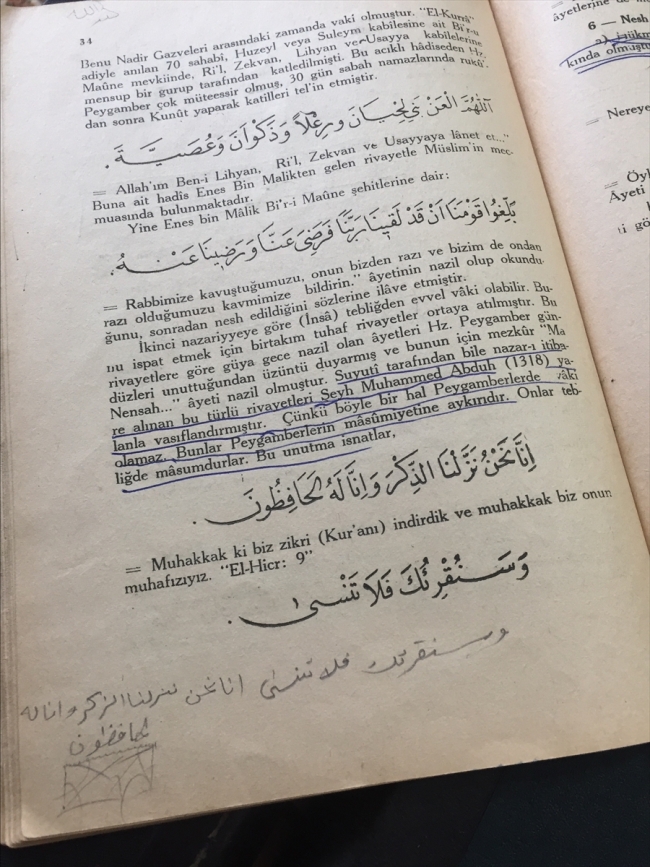 34
Benu Nadir Gazveleri arasındaki zamanda vaki olmuştur. "El-Kurrâ"
adiyle anılan 70 sahabi, Huzeyl veya Suleym kabilesine ait Bi'r-u
Maûne mevkiinde, Ri'l, Zekvan, Lihyan ve Usayya kabilelerine
mensup bir gurup tarafından katledilmişti. Bu acıklı hâdiseden Hz.
Peygamber çok müteessir olmuş, 30 gün sabah namazlarında rukû'.
dan sonra Kunût yaparak katilleri tel'in etmiştir.
اَللّٰهُمَّ الْعَنْ بَنِي لِحْيَانَ وَرِعْلاً وَذَكْوَانَ وَعُصَيَّةَ .
= Allah'ım Ben-i Lihyan, Ri'l, Zekvan ve Usayyaya lânet et..."
Buna ait hadîs Enes Bin Malikten gelen rivayetle Müslim'in mec-
muasında bulunmaktadır.
Yine Enes bin Mâlik Bi'r-i Maûne şehitlerine dair:
بَلِّغُوا قَوْمَنَا اَنْ قَدْ لَقِينَا رَبَّنَا فَرَضِيَ عَنَّا وَرَضِينَا عَنْهُ .
= Rabbimize kavuştuğumuzu, onun bizden razı ve bizim de ondan
razı olduğumuzu kavmimize bildirin." âyetinin nazil olup okundu.
ğunu, sonradan nesh edildiğini sözlerine ilâve etmiştir.
İkinci nazariyyeye göre (İnsâ) tebliğden evvel vâki olabilir. Bu-
nu ispat etmek için birtakım tuhaf rivayetler ortaya atılmıştır. Bu
rivayetlere göre güya gece nazil olan âyetleri Hz. Peygamber gün-
düzleri unuttuğundan üzüntü duyarmış ve bunun için mezkûr "Ma
Nensah..." âyeti nazil olmuştur. Suyutî tarafından bile nazar-ı itiba-
re alınan bu türlü rivayetleri Şeyh Muhammed Abduh (1318) ya-
lanla vasıflandırmıştır. Çünkü böyle bir hal Peygamberlerde vâki
olamaz. Bunlar Peygamberlerin mâsûmiyetine aykırıdır. Onlar teb-
liğde mâsumdurlar. Bu unutma isnatlar,
اِنَّا نَحْنُ نَزَّلْنَا الذِّكْرَ وَاِنَّا لَهُ لَحَافِظُونَ .
= Muhakkak ki biz zikri (Kur'anı) indirdik ve muhakkak biz onun
muhafızıyız. "El-Hicr: 9"
وَسَنُقْرِئُكَ فَلَا تَنْسٰى .
وسنقرئك فلا تنسى انا نحن نزلنا الذكر وانا له
لحافظون
âyetlerine de
6 — Nesh
kında olmuştu
Nereye
= Öyl
Âyeti